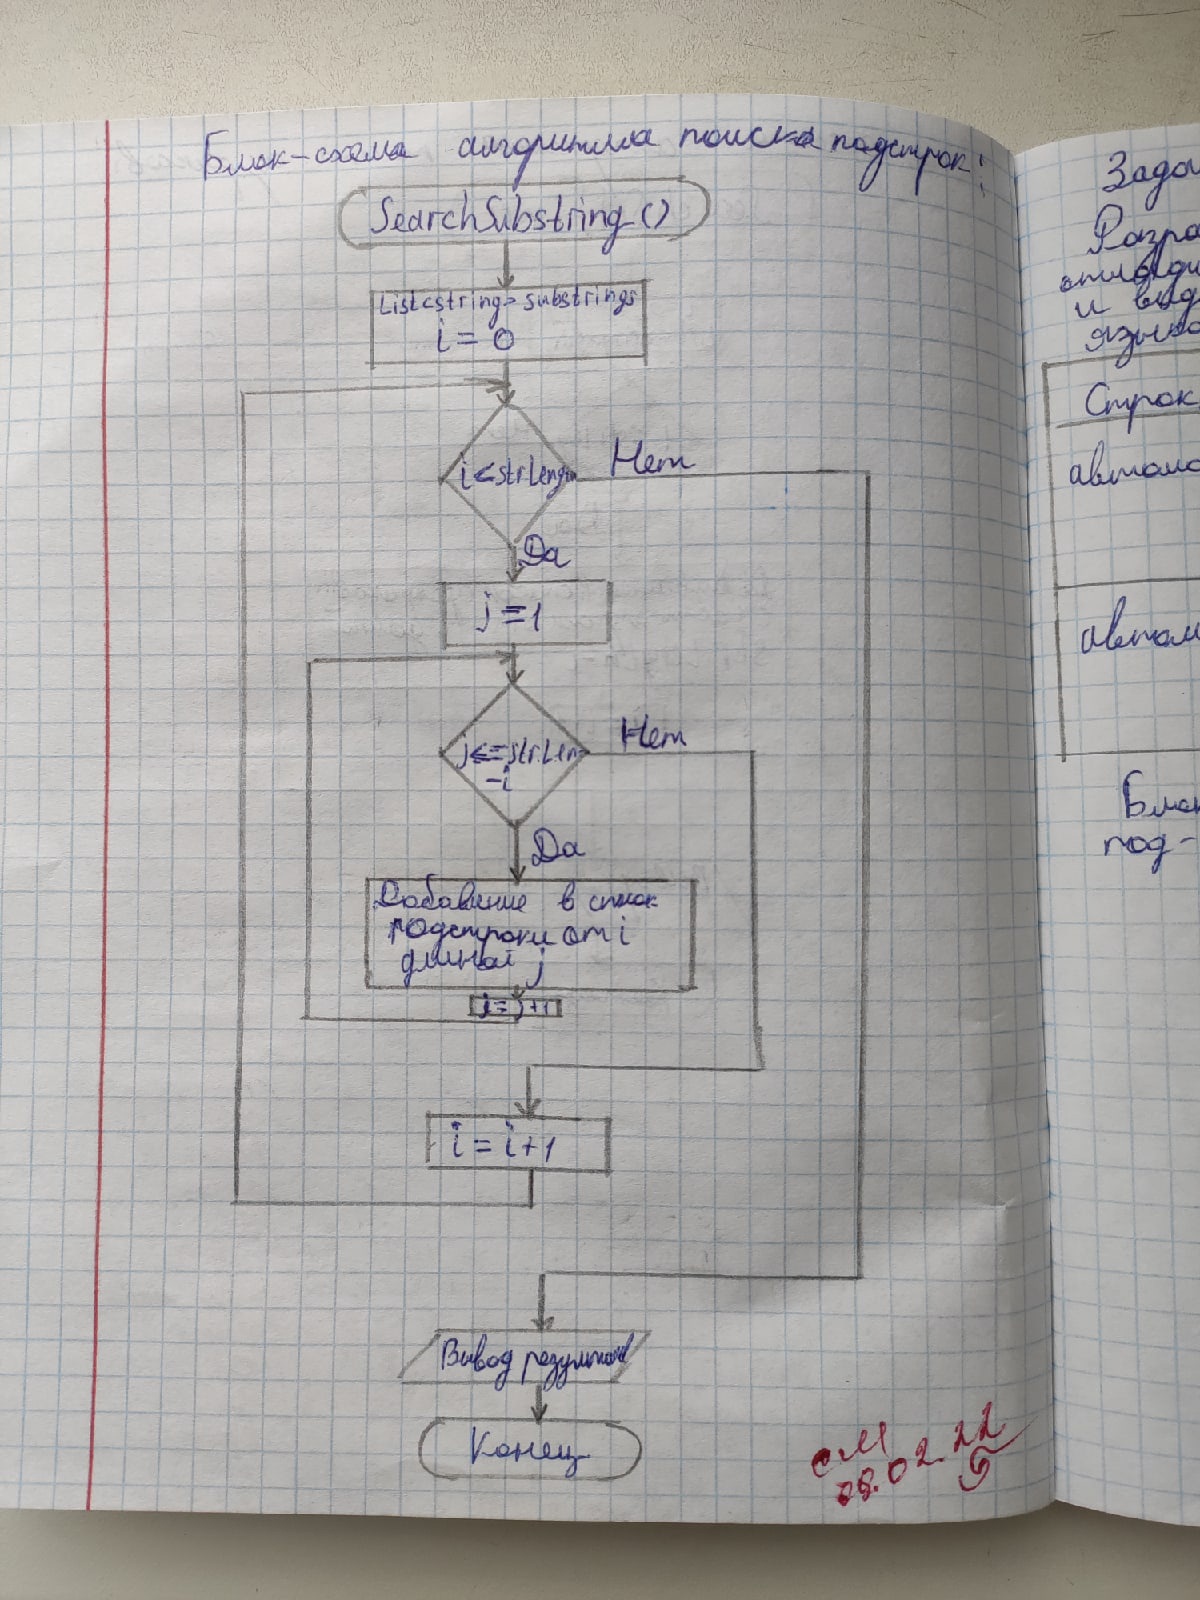 Блок-схема алгоритма поиска подстрок:
SearchSubstring()
List<string> substrings
i = 0
i < str.Length
Нет
Да
j = 1
j <= str.Len
- i
Нет
Да
Добавление в список
подстроки от i
длиной j
j = j + 1
i = i + 1
Вывод результатов
Конец
см
08.02.22
5
Задан
Разра
и выд
языко
Строк
автома
автом
Блок
под-